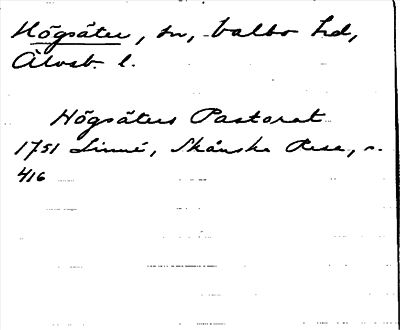 Högsäter, sn, Valbo hd,
Älvsb. l.
Högsäters Pastorat
1751 Linné, Skånska Resa, s.
416